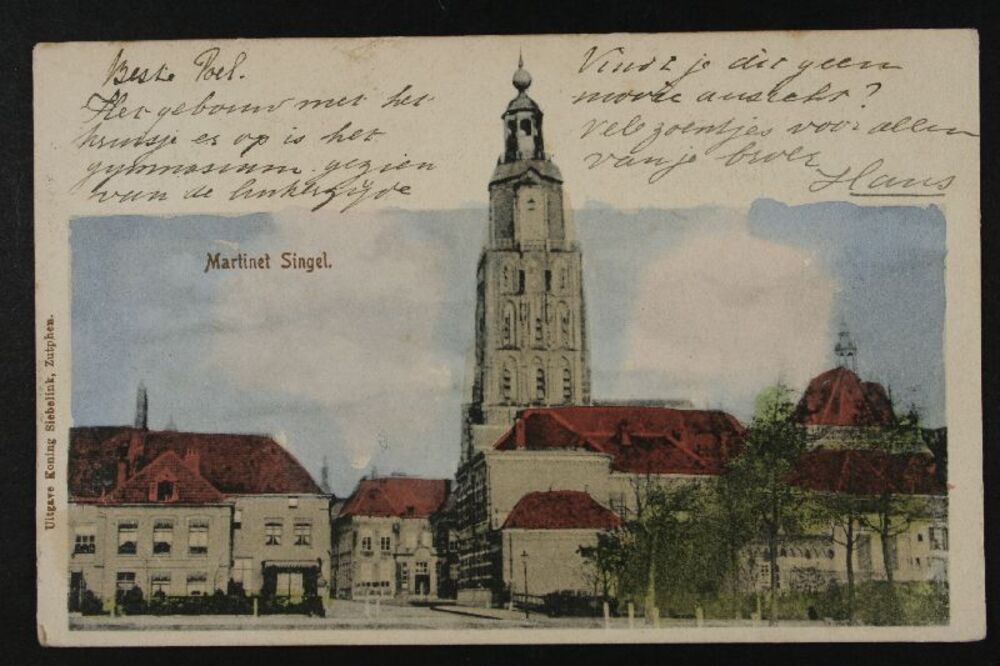 Beste Poel.
Het gebouw met het
kruisje er op is het
gymnasium gezien
van de linkerzijde
Vindt je dit geen
mooie ansicht?
Vele zoentjes voor allen
van je broer
Hans
Martinet Singel.
Uitgave Koning Siebelink, Zutphen.